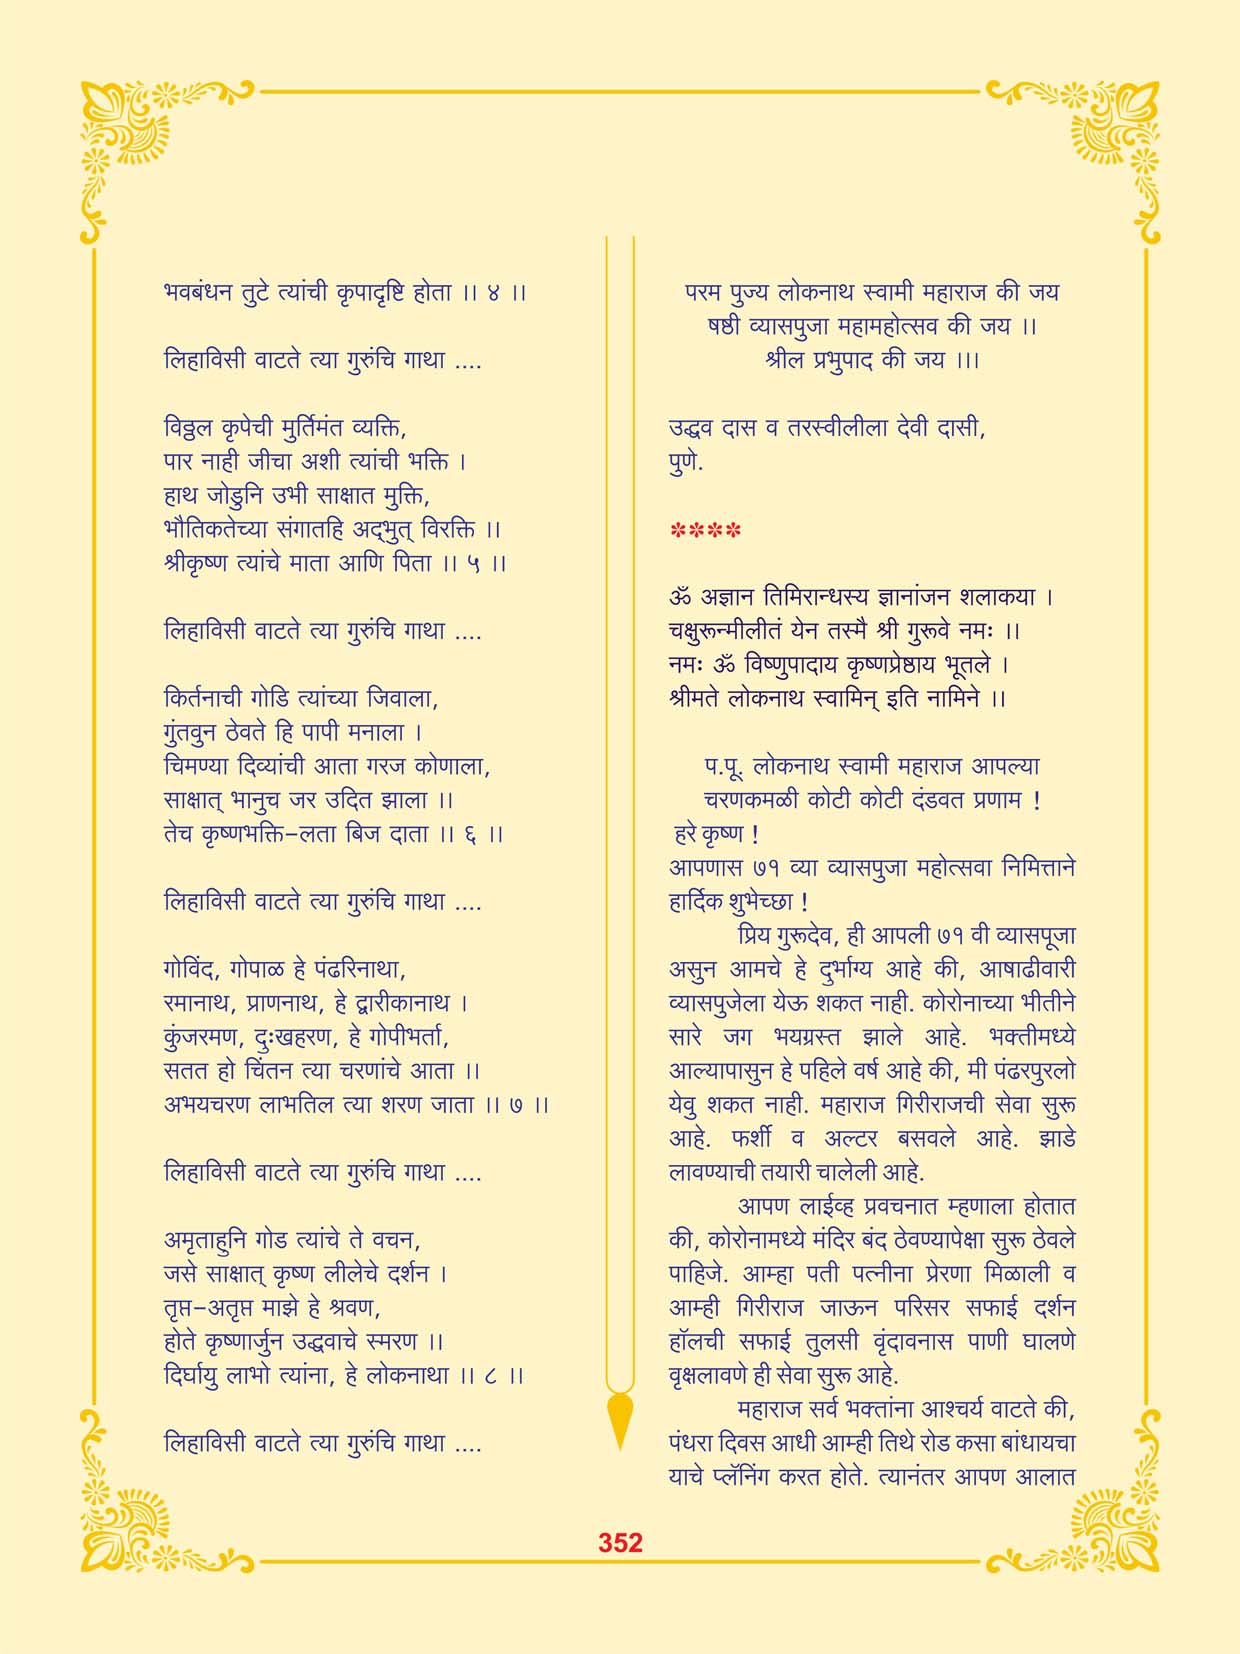 भवबंधन तुटे त्यांची कृपादृष्टि होता ।। ४ ।।
लिहाविसी वाटते त्या गुरुंचि गाथा ....
विठ्ठल कृपेची मुर्तिमंत व्यक्ति,
पार नाही जीचा अशी त्यांची भक्ति ।
हाथ जोडुनि उभी साक्षात मुक्ति,
भौतिकतेच्या संगातहि अद्‌भुत् विरक्ति ।।
श्रीकृष्ण त्यांचे माता आणि पिता ।। ५ ।।
लिहाविसी वाटते त्या गुरुंचि गाथा ....
किर्तनाची गोडि त्यांच्या जिवाला,
गुंतवुन ठेवते हि पापी मनाला ।
चिमण्या दिव्यांची आता गरज कोणाला,
साक्षात् भानुच जर उदित झाला ।।
तेच कृष्णभक्ति-लता बिज दाता ।। ६ ।।
लिहाविसी वाटते त्या गुरुंचि गाथा ....
गोविंद, गोपाळ हे पंढरिनाथा,
रमानाथ, प्राणनाथ, हे द्वारीकानाथ ।
कुंजरमण, दुःखहरण, हे गोपीभर्ता,
सतत हो चिंतन त्या चरणांचे आता ।।
अभयचरण लाभतिल त्या शरण जाता ।। ७ ।।
लिहाविसी वाटते त्या गुरुंचि गाथा ....
अमृताहुनि गोड त्यांचे ते वचन,
जसे साक्षात् कृष्ण लीलेचे दर्शन ।
तृप्त-अतृप्त माझे हे श्रवण,
होते कृष्णार्जुन उद्धवाचे स्मरण ।।
दिर्घायु लाभो त्यांना, हे लोकनाथा ।। ८ ।।
लिहाविसी वाटते त्या गुरुंचि गाथा ....
परम पुज्य लोकनाथ स्वामी महाराज की जय
षष्ठी व्यासपुजा महामहोत्सव की जय ।।
श्रील प्रभुपाद की जय ।।।
उद्धव दास व तरस्वीलीला देवी दासी,
पुणे.
****
ॐ अज्ञान तिमिरान्धस्य ज्ञानांजन शलाकया ।
चक्षुरून्मीलीतं येन तस्मै श्री गुरूवे नमः ।।
नमः ॐ विष्णुपादाय कृष्णप्रेष्ठाय भूतले ।
श्रीमते लोकनाथ स्वामिन् इति नामिने ।।
प.पू. लोकनाथ स्वामी महाराज आपल्या
चरणकमळी कोटी कोटी दंडवत प्रणाम !
हरे कृष्ण !
आपणास ७१ व्या व्यासपुजा महोत्सवा निमित्ताने
हार्दिक शुभेच्छा !
प्रिय गुरूदेव, ही आपली ७१ वी व्यासपूजा
असुन आमचे हे दुर्भाग्य आहे की, आषाढीवारी
व्यासपुजेला येऊ शकत नाही. कोरोनाच्या भीतीने
सारे जग भयग्रस्त झाले आहे. भक्तीमध्ये
आल्यापासुन हे पहिले वर्ष आहे की, मी पंढरपुरलो
येवु शकत नाही. महाराज गिरीराजची सेवा सुरू
आहे. फर्शी व अल्टर बसवले आहे. झाडे
लावण्याची तयारी चालेली आहे.
आपण लाईव्ह प्रवचनात म्हणाला होतात
की, कोरोनामध्ये मंदिर बंद ठेवण्यापेक्षा सुरू ठेवले
पाहिजे. आम्हा पती पत्नीना प्रेरणा मिळाली व
आम्ही गिरीराज जाऊन परिसर सफाई दर्शन
हॉलची सफाई तुलसी वृंदावनास पाणी घालणे
वृक्षलावणे ही सेवा सुरू आहे.
महाराज सर्व भक्तांना आश्चर्य वाटते की,
पंधरा दिवस आधी आम्ही तिथे रोड कसा बांधायचा
याचे प्लॅनिंग करत होते. त्यानंतर आपण आलात
352